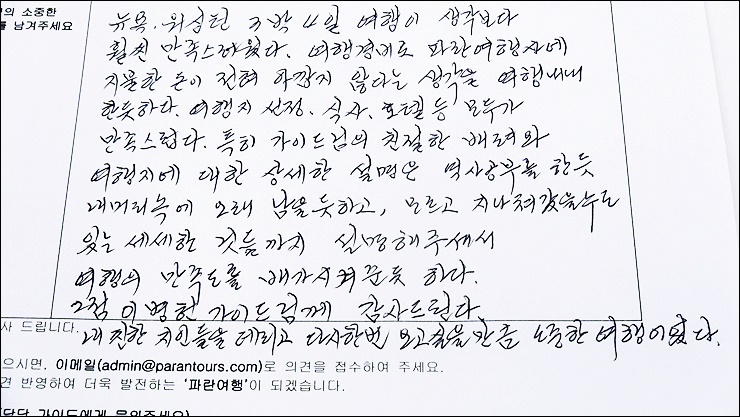 의 소중한
를 남겨주세요
뉴욕. 워싱턴 3박 4일 여행이 생각보다
훨씬 만족스러웠다. 여행경비로 파란여행사에
지불한 돈이 전혀 아깝지 않다는 생각을 여행내내
한듯하다. 여행지 선정. 식사. 호텔 등 모두가
만족스럽다. 특히 가이드님의 친절한 배려와
여행지에 대한 상세한 설명은 역사공부를 한듯
내머리속에 오래 남을듯하고, 모르고 지나쳐갔을수도
있는 세세한 것들까지 설명해주셔서
여행의 만족도를 배가시켜준듯 하다.
2점 이병헌 가이드님께 감사드린다
사 드립니다.
내 친한 지인들을 데리고 다시한번 오고싶을만큼 소중한 여행이었다.
으시면, 이메일(admin@parantours.com)로 의견을 접수하여 주세요.
견 반영하여 더욱 발전하는 '파란여행'이 되겠습니다.
담당 가이드에게 문의주세요)